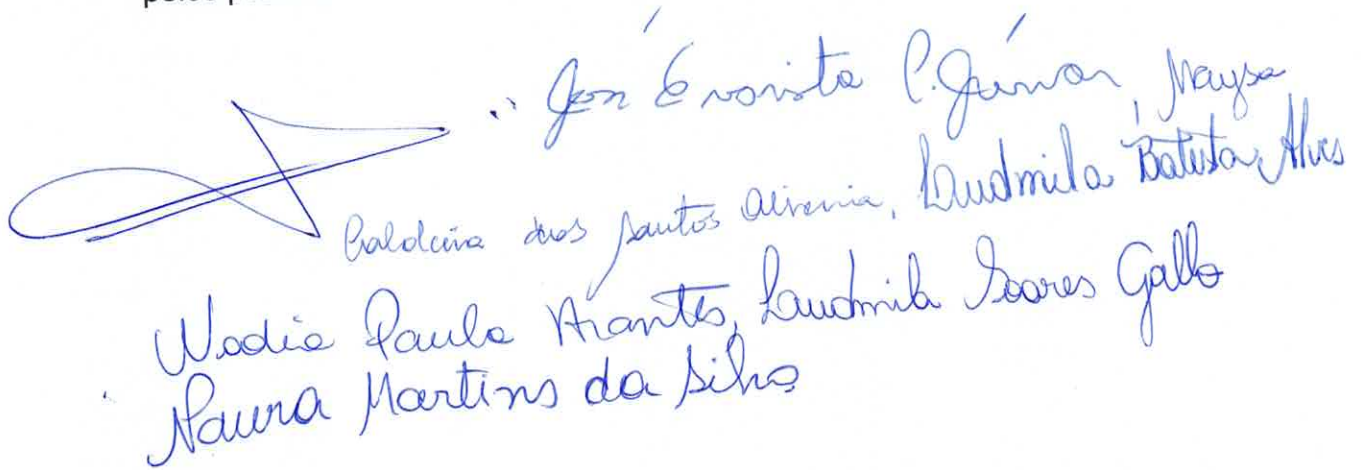 José Evarista C. Júnior, Maysa
Caldeira dos Santos Oliveira, Ludmila Batista Alves
Nadia Paula Arantes, Ludmila Soares Gallo
Naura Martins da Silva